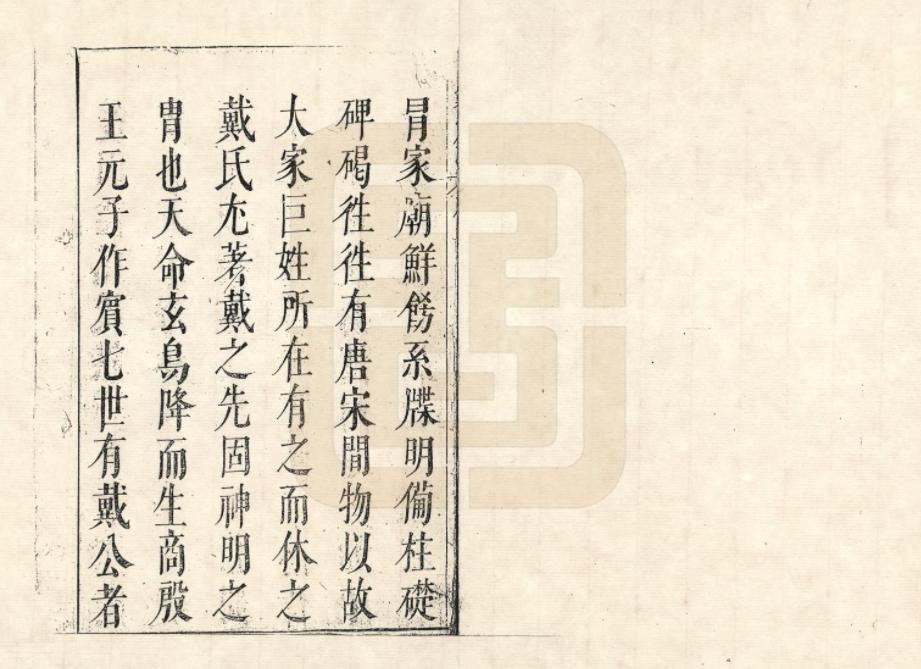 冐家廟鮮餝系牒明備柱礎
碑碣徃徃有唐宋間物以故
大家巨姓所在有之而休之
戴氏尤著戴之先固神明之
胄也天命玄鳥降而生商殷
王元子作賓七世有戴公者